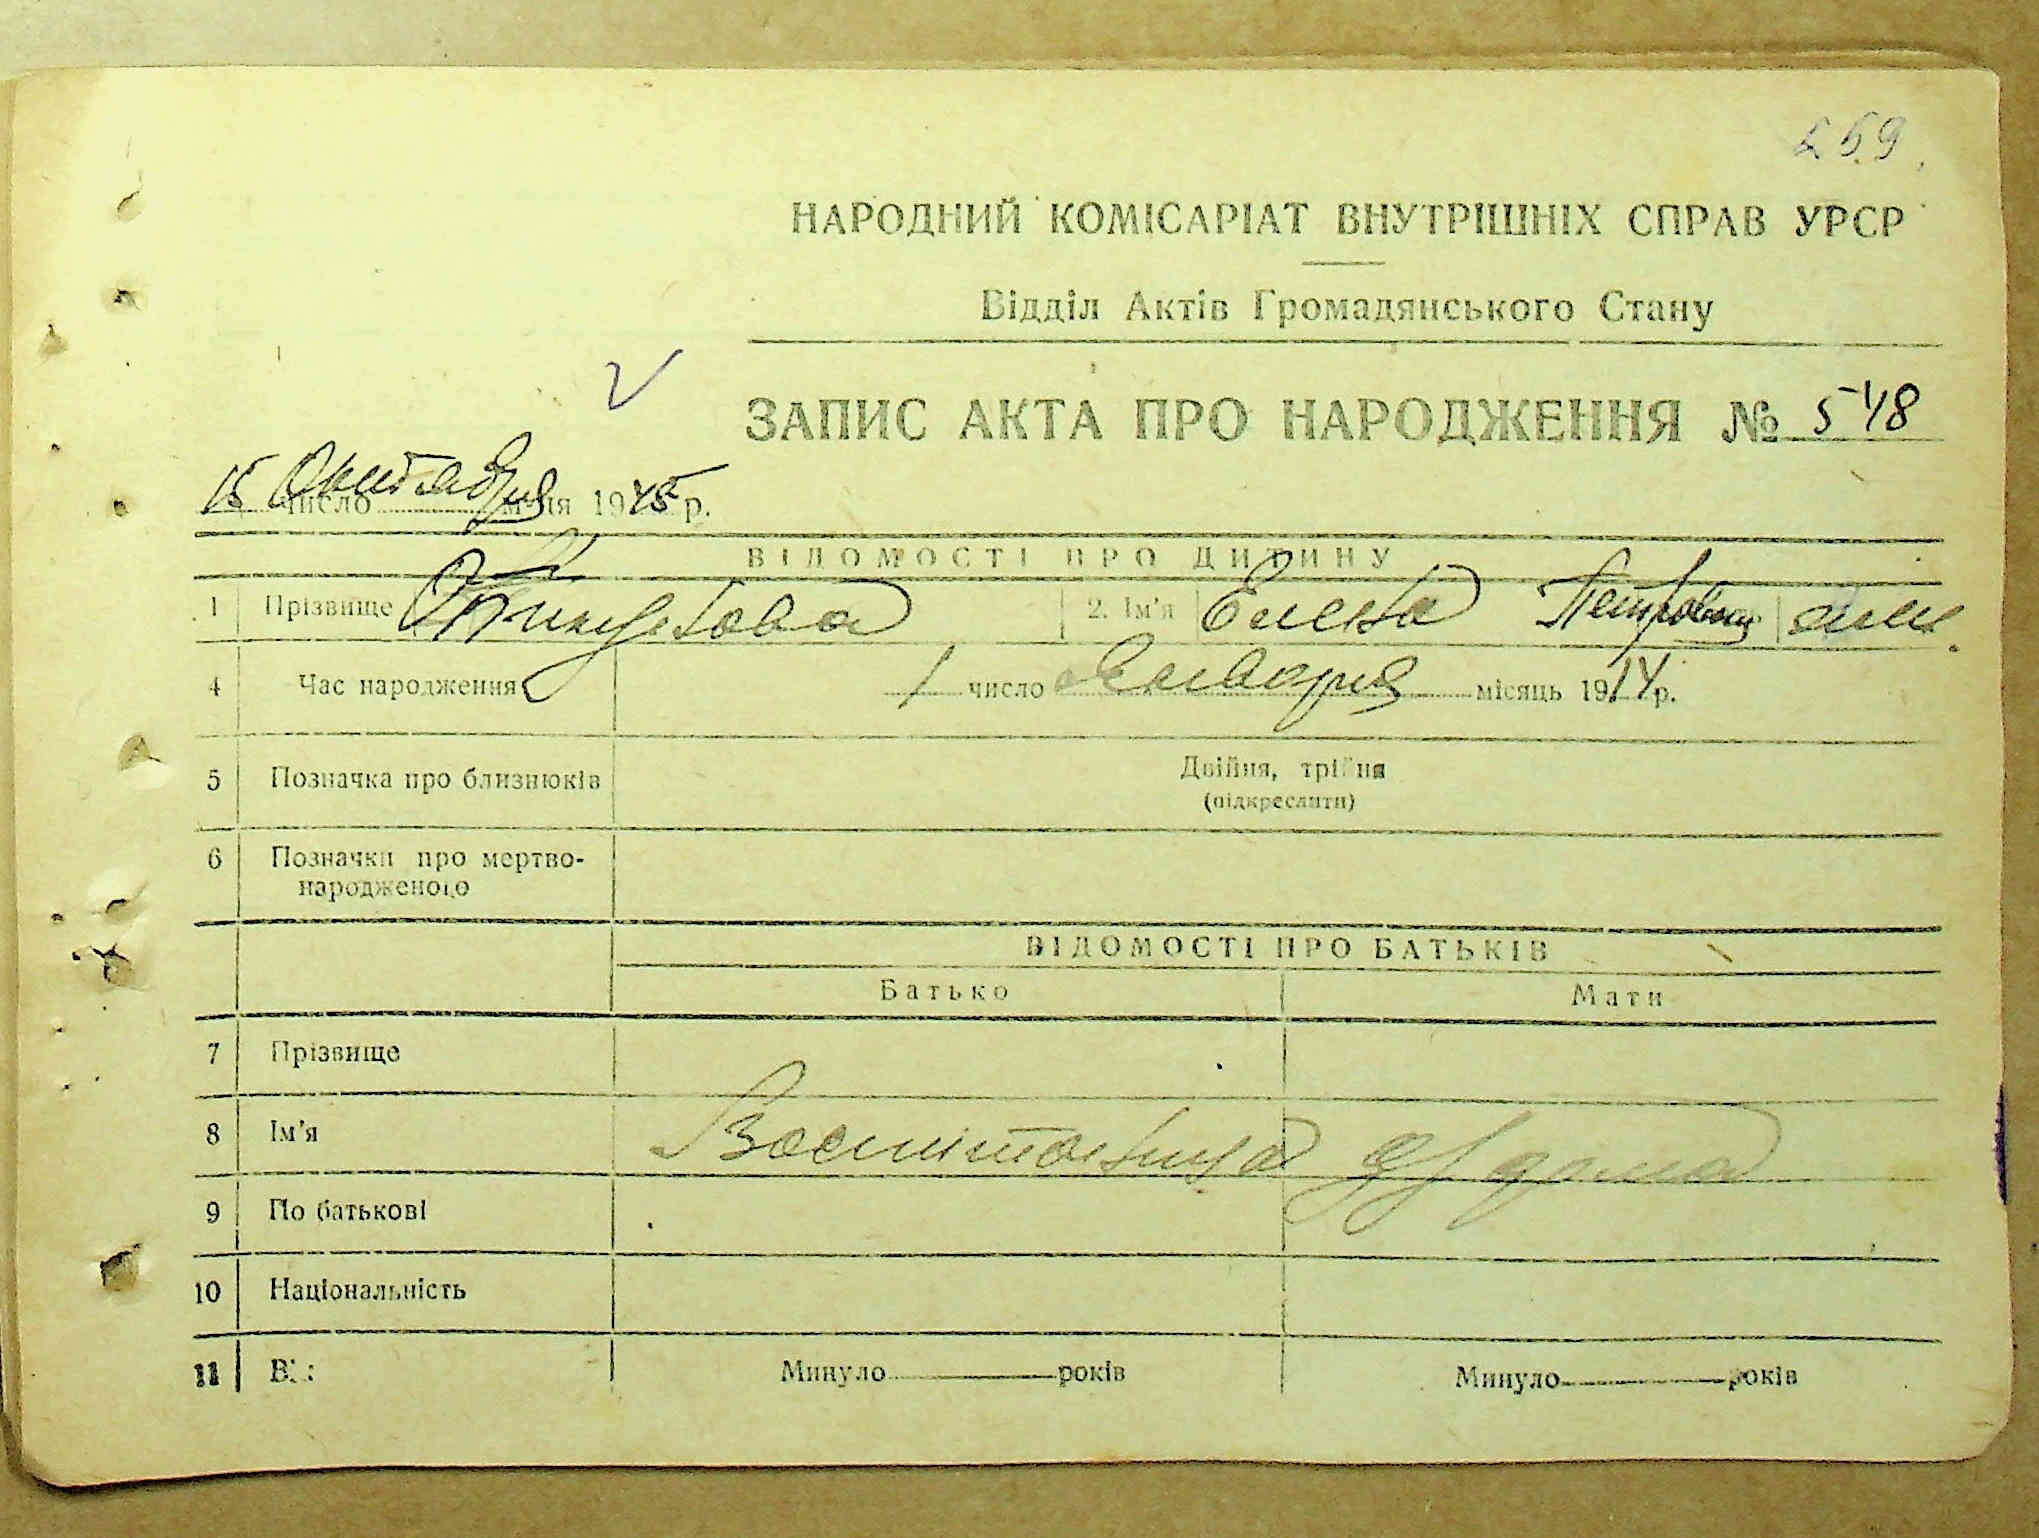 259
НАРОДНИЙ КОМІСАРІАТ ВНУТРІШНІХ СПРАВ УРСР
Відділ Актів Громадянського Стану
ЗАПИС АКТА ПРО НАРОДЖЕННЯ № 548
15 число Октября м-ця 1945 р.
ВІДОМОСТІ ПРО ДИТИНУ
1 Прізвище 2. Ім'я Елена Петровна жен.
4 Час народження 1 число Января місяць 1914 р.
5 Позначка про близнюків Двійня, трійня
(підкреслити)
6 Позначки про мертво-
народженого
ВІДОМОСТІ ПРО БАТЬКІВ
Батько Мати
7 Прізвище
8 Ім'я Воспитаница д/дома
9 По батькові
10 Національність
11 Вік Минуло років Минуло років